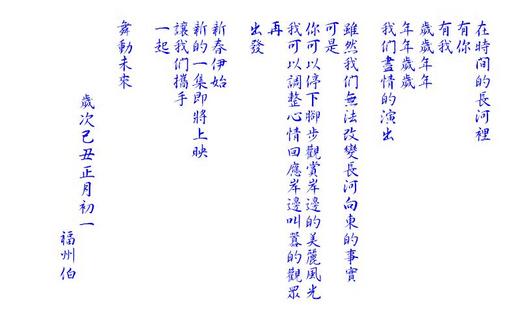 在時間的長河裡
有你
有我
歲歲年年
年年歲歲
我們盡情的演出
雖然我們無法改變長河向東的事實
可是
你可以停下腳步觀賞岸邊的美麗風光
我可以調整心情回應岸邊叫囂的觀眾
再
出發
新春伊始
新的一集即將上映
讓我們攜手
一起
舞動未來
歲次己丑正月初一
福州伯